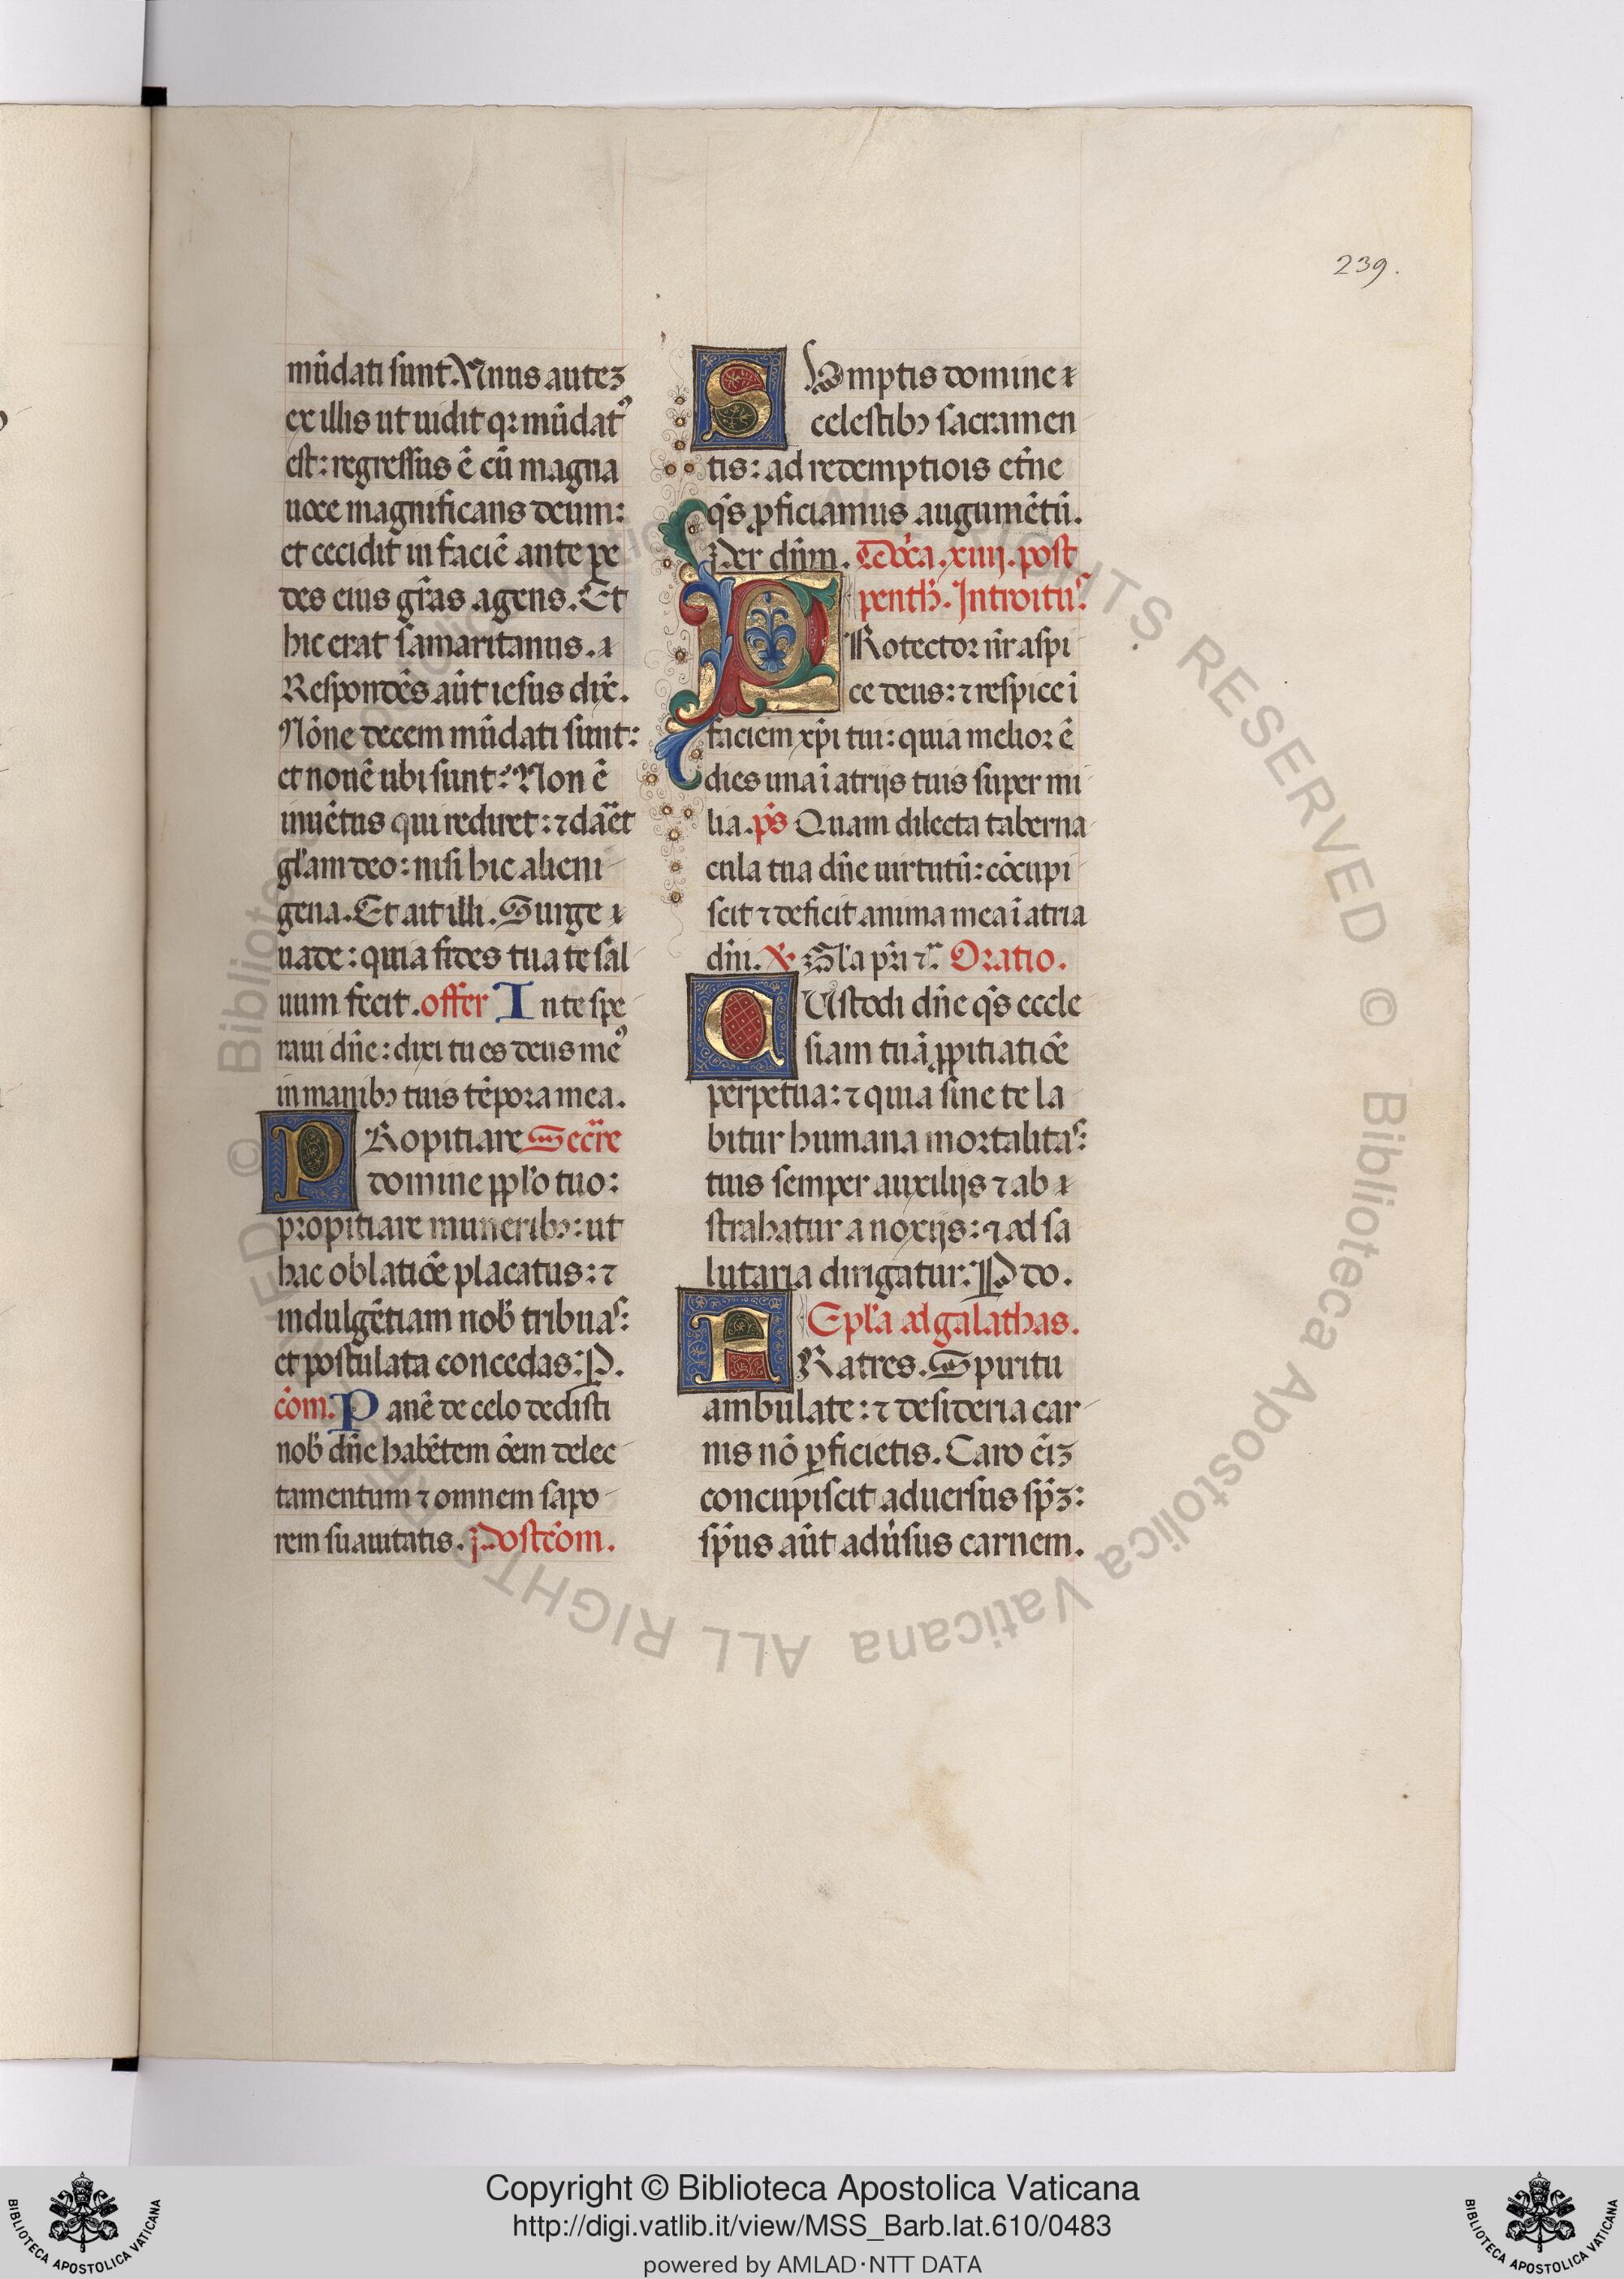 239.
mūdati sunt. Vnus autez
ex illis ut uidit qꝛ mūdatꝰ
est: regressus ē cū magna
uoce magnificans deum:
et cecidit in faciē ante pe
des eius gr̄as agens. Et
hic erat samaritanus.
Respondēs aūt iesus dix̄.
Nōne decem mūdati sunt:
et nouē ubi sunt? Non ē
inuētus qui rediret: ⁊ daret
gl̄am deo: nisi hic alieni
gena. Et ait illi. Surge
uade: quia fides tua te sal
uum fecit. offer In te spe
raui dn̄e: dixi tu es deus meꝰ
in manibꝫ tuis tēpora mea.
PRopitiare Secr̄e
domine pplo tuo:
propitiare muneribꝫ: ut
hac oblatiōe placatus: ⁊
indulgētiam nob̄ tribuas:
et postulata concedas: P.
cōm. Panē de celo dedisti
nob̄ dn̄e habētem ōem delec
tamentum ⁊ omnem sapo
rem suauitatis. Postcōm.
SVmptis domine
celestibꝫ sacramen
tis: ad redemptiōis et̄ne
q̄s ꝓficiamus augumētū.
Per dn̄m. Dōca. xiiij. post
penth̄. Introitus
PRotector nr̄ aspi
ce deus: ⁊ respice ī
faciem xp̄i tui: quia melior ē
dies una ī atrijs tuis super mi
lia. p̄s Quam dilecta taberna
cula tua dn̄e uirtutū: cōcupi
scit ⁊ deficit anima mea ī atria
dn̄i. ℣. Gl̄a pr̄i ⁊c̄. Oratio.
CVstodi dn̄e q̄s eccle
siam tuā ꝓpitiatiōe
perpetua: ⁊ quia sine te la
bitur humana mortalitas:
tuis semper auxilijs ⁊ ab
strahatur a noxijs: ⁊ ad sa
lutaria dirigatur: P do.
Epl̄a ad galathas.
FRatres. Spiritu
ambulate: ⁊ desideria car
nis nō ꝑficietis. Caro ēiꝫ
concupiscit aduersus sp̄ꝫ:
sp̄us aūt adu̓sus carnem.
© Biblioteca Apostolica Vaticana ALL RIGHTS RESERVED
Copyright © Biblioteca Apostolica Vaticana
http://digi.vatlib.it/view/MSS_Barb.lat.610/0483
powered by AMLAD·NTT DATA
BIBLIOTECA APOSTOLICA VATICANA
BIBLIOTECA APOSTOLICA VATICANA